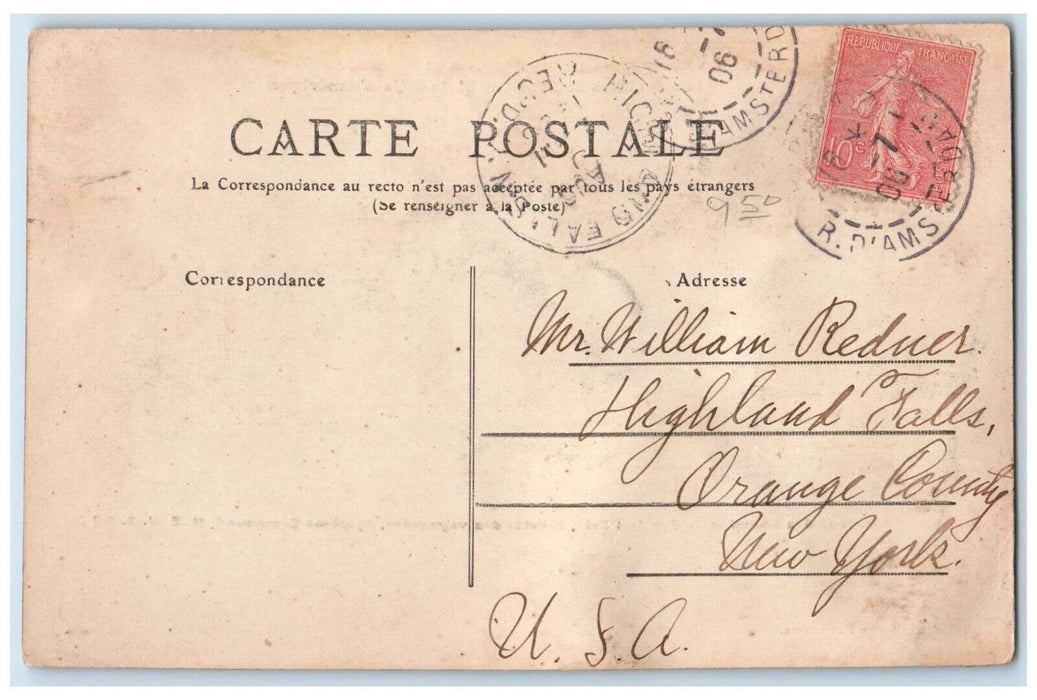 REPUBLIQUE FRANÇAISE
10c
R. D'AMSTERDAM
CARTE POSTALE
La Correspondance au recto n'est pas acceptée par tous les pays étrangers
(Se renseigner à la Poste)
9 50
Correspondance
Adresse
Mr. William Redner.
Highland Falls,
Orange County
New York.
U. S. A.